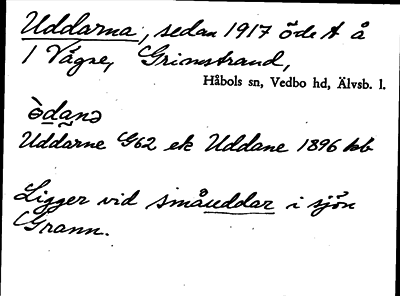 Uddarna, sedan 1917 öde t å
1 Vågne, Grimstrand,
Håbols sn, Vedbo hd, Älvsb. l.
ə̀danə
Uddarne G62 ek Uddane 1896 kb
Ligger vid småuddar i sjön
Grann.